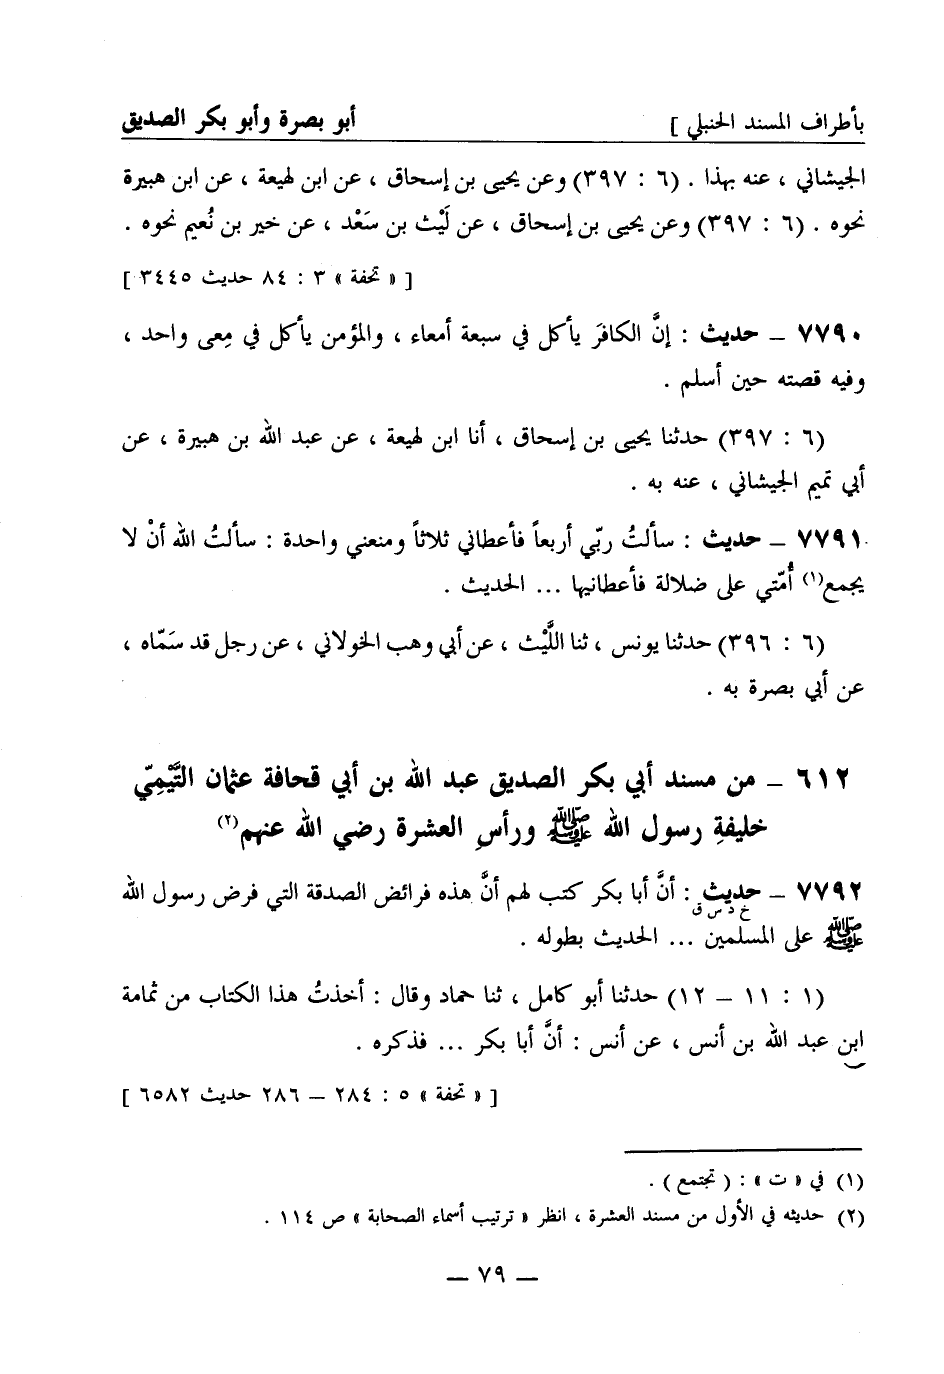 بأطراف المسند الحنبلي ] أبو بصرة وأبو بكر الصديق
الجيشاني ، عنه بهذا . (٦ : ٣٩٧) وعن يحيى بن إسحاق ، عن ابن لهيعة ، عن ابن هبيرة
نحوه . (٦ : ٣٩٧) وعن يحيى بن إسحاق ، عن لَيْث بن سَعْد ، عن خير بن نُعيم نحوه .
[ « تحفة » ٣ : ٨٤ حديث ٣٤٤٥ ]
٧٧٩٠ – حديث : إنَّ الكافرَ يأكل في سبعة أمعاء ، والمؤمن يأكل في مِعى واحد ،
وفيه قصته حين أسلم .
(٦ : ٣٩٧) حدثنا يحيى بن إسحاق ، أنا ابن لهيعة ، عن عبد الله بن هبيرة ، عن
أبي تميم الجيشاني ، عنه به .
٧٧٩١ – حديث : سألتُ ربّي أربعاً فأعطاني ثلاثاً ومنعني واحدة : سألتُ الله أنْ لا
يجمع(١) أُمّتي على ضلالة فأعطانيها ... الحديث .
(٦ : ٣٩٦) حدثنا يونس ، ثنا اللَّيْث ، عن أبي وهب الخولاني ، عن رجل قد سَمّاه ،
عن أبي بصرة به .
٦١٢ – من مسند أبي بكر الصديق عبد الله بن أبي قحافة عثمان التَّيْمِيّ
خليفةِ رسول الله ﷺ ورأسِ العشرة رضي الله عنهم(٢)
٧٧٩٢ – حديث : أنَّ أبا بكر كتب لهم أنَّ هذه فرائض الصدقة التي فرض رسول الله
خ د س ق
ﷺ على المسلمين ... الحديث بطوله .
(١ : ١١ – ١٢) حدثنا أبو كامل ، ثنا حماد وقال : أخذتُ هذا الكتاب من ثمامة
ابن عبد الله بن أنس ، عن أنس : أنَّ أبا بكر ... فذكره .
[ « تحفة » ٥ : ٢٨٤ – ٢٨٦ حديث ٦٥٨٢ ]
(١) في « ت » : ( تجتمع ) .
(٢) حديثه في الأول من مسند العشرة ، انظر « ترتيب أسماء الصحابة » ص ١١٤ .
– ٧٩ –